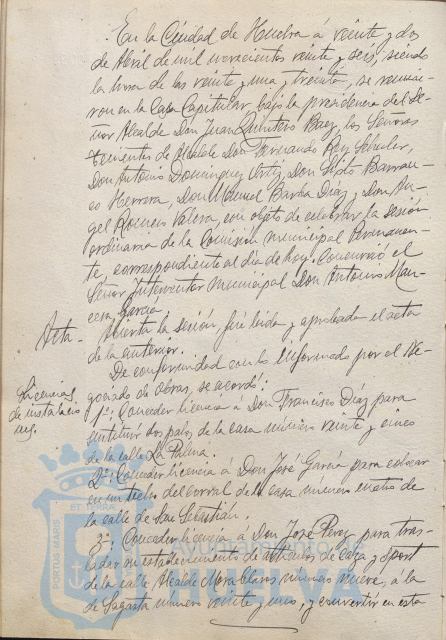 En la Ciudad de Huelva á veinte y dos
de Abril de mil novecientos veinte y seis, siendo
la hora de las veinte y una y treinta, se reunie-
ron en la Casa Capitular, bajo la presidencia del Se-
ñor Alcalde Don Juan Quintero Baez, los Señores
tenientes de Alcalde Don Fernando Rey
Don Antonio Dominguez Ortiz, Don Sixto Barran-
co Herrera, Don Manuel Barba Diaz, y Don An-
gel Romero Valera, con objeto de celebrar la sesión
ordinaria de la Comisión Municipal Permanen-
te, correspondiente al dia de hoy. Concurrió el
Señor Interventor Municipal Don Antonio Man-
cera Garcia.
Acta.- Abierta la sesión, fué leida y aprobada el acta
de la anterior.
De conformidad con lo informado por el Ne-
gociado de obras, se acordó:
Licencias
de instalacio
nes.
1º; Conceder licencia á Don Francisco Díaz para
sustituir dos palos de la casa número veinte y cinco
de la calle La Palma.
2º; Conceder licencia á Don José García para colocar
en un techo del corral de la casa número cuatro de
la calle de San Sebastián.
3º; Conceder licencia á Don José Perez para tras-
ladar su establecimiento de artículos de caza y sport
de la calle Alcalde Mora Claros número nueve, á la
de Sagasta número veinte y uno, y convertir en esta
PORTUS MARIS ET TERRA
Ayuntamiento de
HUELVA